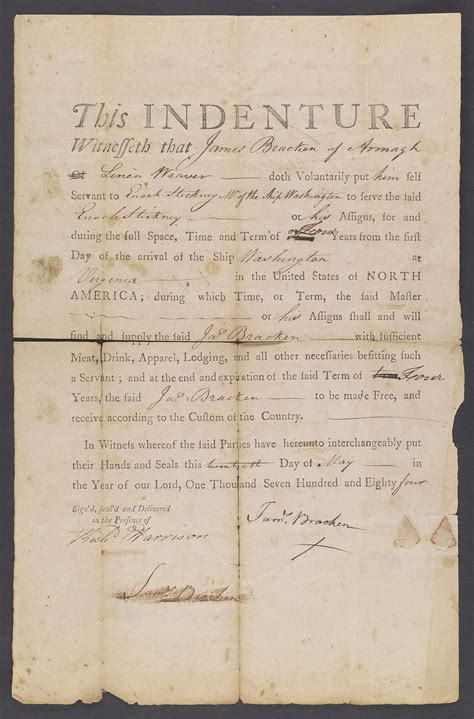 This INDENTURE
Witnesseth that James Bracken of Armagh
Linen Weaver doth Voluntarily put him self
Servant to Enoch Stickney Mr. of the Ship Washington to serve the said
Enoch Stickney or his Assigns, for and
during the full Space, Time and Term of Four Years from the first
Day of the arrival of the Ship Washington at
Virginia in the United States of NORTH
AMERICA; during which Time, or Term, the said Master
or his Assigns shall and will
find and supply the said Jas. Bracken with sufficient
Meat, Drink, Apparel, Lodging, and all other necessaries befitting such
a Servant; and at the end and expiration of the said Term of Four
Years, the said Jas. Bracken to be made Free, and
receive according to the Custom of the Country.
In Witness whereof the said Parties have hereunto interchangeably put
their Hands and Seals this twentieth Day of May in
the Year of our Lord, One Thousand Seven Hundred and Eighty four
Sign'd, Seal'd and Delivered
in the Presence of
Richd. Harrison
Jams. Bracken
X
Jams. Bracken